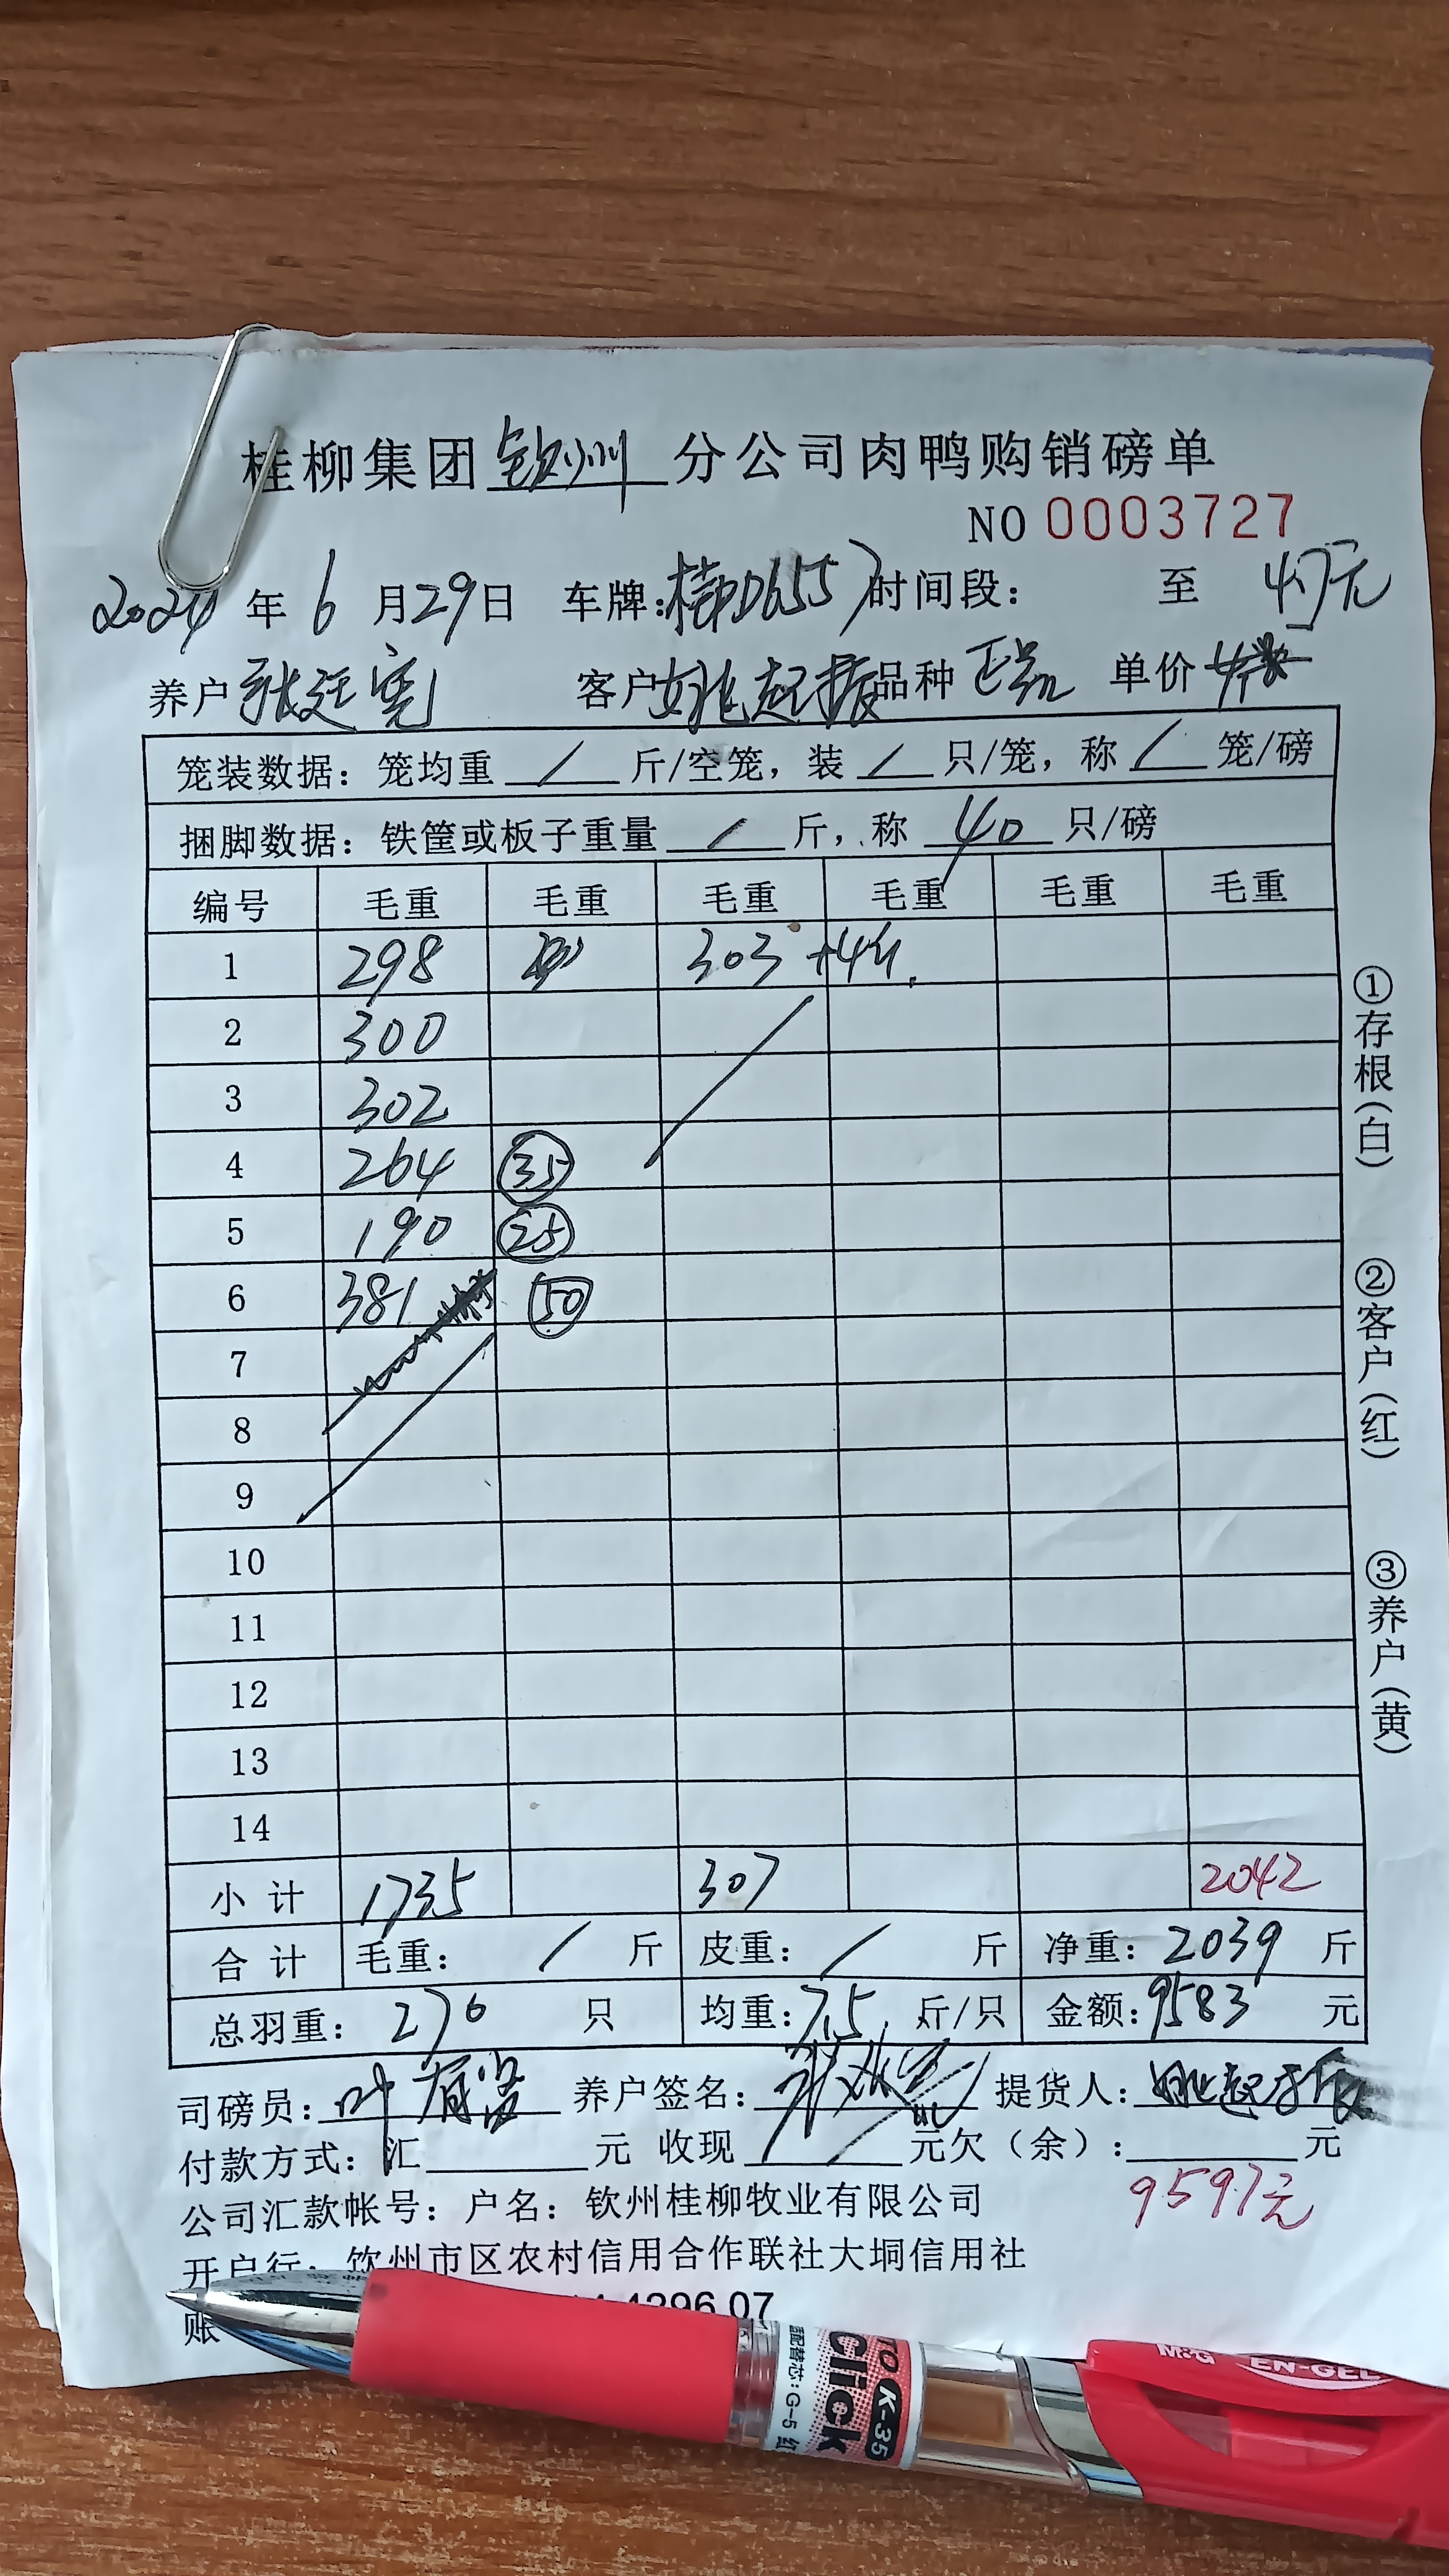 桂柳集团钦州分公司肉鸭购销磅单
NO 0003727
2024年6月29日 车牌:桂D655 时间段: 至 4.7元
养户 张廷宪 客户 姚起振 品种 正品 单价
笼装数据: 笼均重 / 斤/空笼, 装 / 只/笼, 称 / 笼/磅
捆脚数据: 铁筐或板子重量 / 斤, 称 40 只/磅
编号 毛重 毛重 毛重 毛重 毛重 毛重
1 298 303 +4斤.
2 300
3 302
4 264 35
5 190 25
6 381 50
7
8
9
10
11
12
13
14
小计 1735 307 2042
合计 毛重: / 斤 皮重: / 斤 净重: 2039 斤
总羽重: 270 只 均重: 7.5 斤/只 金额: 9583 元
司磅员: 叶 养户签名: 提货人: 姚起振
付款方式: 汇 元 收现 元欠(余): 元
9597元
公司汇款帐号: 户名: 钦州桂柳牧业有限公司
开户行: 钦州市区农村信用合作联社大垌信用社
账 4296 07
①存根(白)
②客户(红)
③养户(黄)
适配替芯:G-5 红
Click
K-35
M&G
EN-GEL